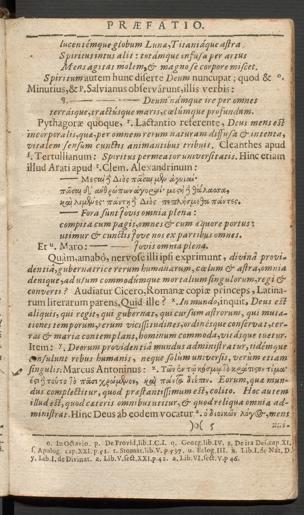 PRÆFATIO.
lucentémque globum Luna, Titaniáque astra
Spiritus intus alit: totámque infusa per artus
Mens agitat molem, & magno se corpore miscet.
Spiritum autem hunc diserte Deum nuncupat; quod & o.
Minutius, & p. Salvianus observârunt, illis verbis:
q. —— Deum námque ire per omnes
terrásque, tractúsque maris, cœlumque profundum.
Pythagoræ quoque, r. Lactantio referente, Deus mens est
incorporalis, qua per omnem rerum naturam diffusa & intenta,
vitalem sensum cunctis animantibus tribuit. Cleanthes apud
s. Tertullianum: Spiritus permeator universitatis. Hinc etiam
illud Arati apud t. Clem. Alexandrinum:
—— Μεσταὶ Διὸς πᾶσαι μὲν ἀγυιαὶ·
πᾶσαι δ' ἀνθρώπων ἀγοραὶ· μεστὴ θάλασσα,
καὶ λιμένες· πάντη Διὸς κεχρήμεθα πάντες.
—— Fora sunt Jovis omnia plena:
compita cum pagis, omnes & cum æquore portus:
utimur & cunctis Jove nos ex partibus omnes.
Et u. Maro: —— Jovis omnia plena.
Quàm, amabò, nervose illi ipsi exprimunt, divinâ provi-
dentiâ, gubernatrice rerum humanarum, cœlum & astra, omnia
denique, ad usum commodúmque mortalium singulorum, regi &
converti? Audiatur Cicero, Romanæ copiæ princeps, Latina-
rum literarum parens, Quid ille? x. In mundo, inquit, Deus est
aliquis, qui regit, qui gubernat, qui cursum astrorum, qui muta-
tiones temporum, rerum vicissitudines, ordinésque conservat, ter-
ras & maria contemplans, hominum commoda, vitásque tuetur.
Item: y. Deorum providentiâ mundus administratur, iidémque
consulunt rebus humanis, neque solùm universis, verùm etiam
singulis. Marcus Antoninus:
Eorum, quæ mun-
dus complectitur, quod præstantissimum est, colito. Hoc autem
illud est, quod cæteris omnibus utitur, & quod reliqua omnia ad-
ministrat. Hinc Deus ab eodem vocatur a. ὁ διοικῶν λόγος, mens
)o( 5
o. In Octavio. p. De Provid. lib. I. C. I. q. Georg. lib. IV. r. De ira Dei. cap. XI.
s. Apolog. cap. XXI. p. 51. t. Stomat. lib. V. p. 597. u. Eclog. III. x. Lib. I. de Nat. D.
y. Lib. I. de Divinat. z. Lib. V. sect. XXI. p. 42. a. Lib. VI. sect. V. p. 46.